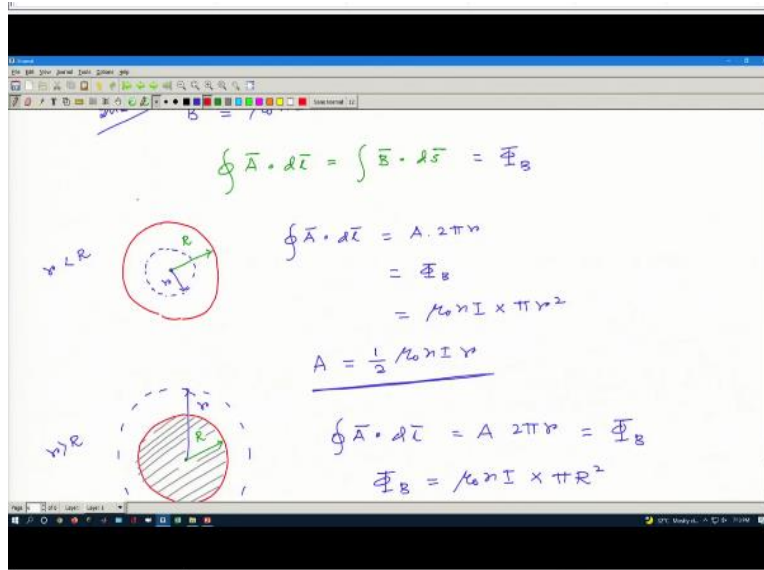 File Edit View Journal Tools Options Help
B = μ₀nI
∮ A̅ • dl̅ = ∫ B̅ • ds̅ = Φ_B
r < R
R
r
∮ A̅ • dl̅ = A . 2πr
= Φ_B
= μ₀nI × πr²
A = 1/2 μ₀nIr
r > R
r
R
∮ A̅ • dl̅ = A 2πr = Φ_B
Φ_B = μ₀nI × πR²
Page 6 Layer: Layer 1